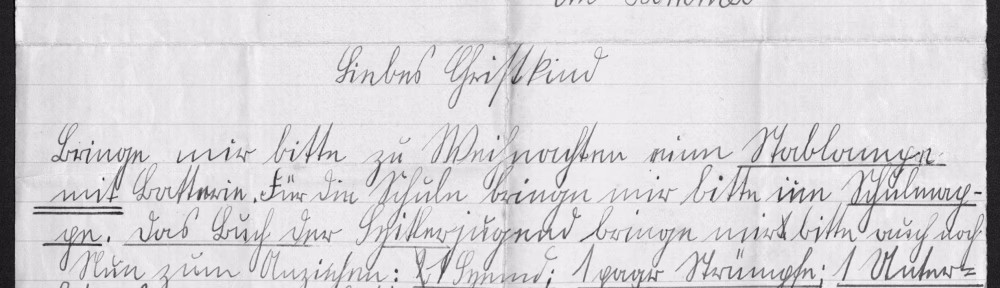 Liebes Christkind
Bringe mir bitte zu Weihnachten eine Stablampe
mit Batterie. Für die Schule bringe mir bitte eine Schulmap-
pe. Das Buch der Schikerjugend bringe mir bitte auch noch
Nun zum Anziehen: 1 Hemd; 1 paar Strümpfe; 1 Unter=